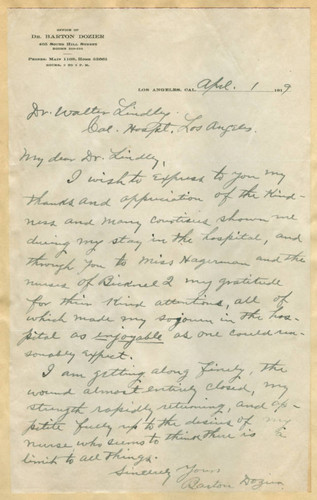 OFFICE OF
DR. BARTON DOZIER
LOS ANGELES, CAL. April 1 1919
Dr. Walter Lindley.
Cal. Hospt. Los Angeles.
My dear Dr. Lindley,
I wish to express to you my
thanks and appreciation of the Kind-
ness and many courtisies shown me
during my stay in the hospital, and
through you to Miss Hagerman and the
nurses of Bicknel 2 my gratitude
for their Kind attentions, all of
which made my sojourn in the hos-
pital as enjoyable as one could rea-
sonably expect.
I am getting along finely, the
wound almost entirely closed, my
strength rapidly returning, and ap-
petite fully up to the desires of my
nurse who seems to think there is
limit to all things.
Sincerely Yours
Barton Dozier